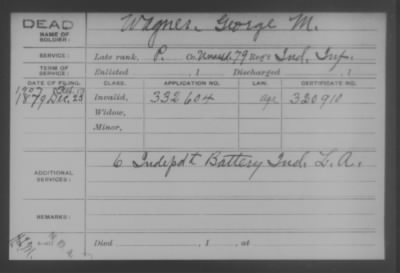 DEAD
NAME OF SOLDIER: Wagner George M.
SERVICE: Late rank, P. Co. Unassd. 79 Reg't Ind. Inf.
TERM OF SERVICE: Enlisted , 1 Discharged , 1
DATE OF FILING. CLASS. APPLICATION NO. LAW. CERTIFICATE NO.
1907
1879 Dec. 23 Invalid, 332604 age 320910
Widow,
Minor,
ADDITIONAL SERVICES: 6 Indepdt Battery Ind. L. A.
REMARKS:
Died , 1 , at